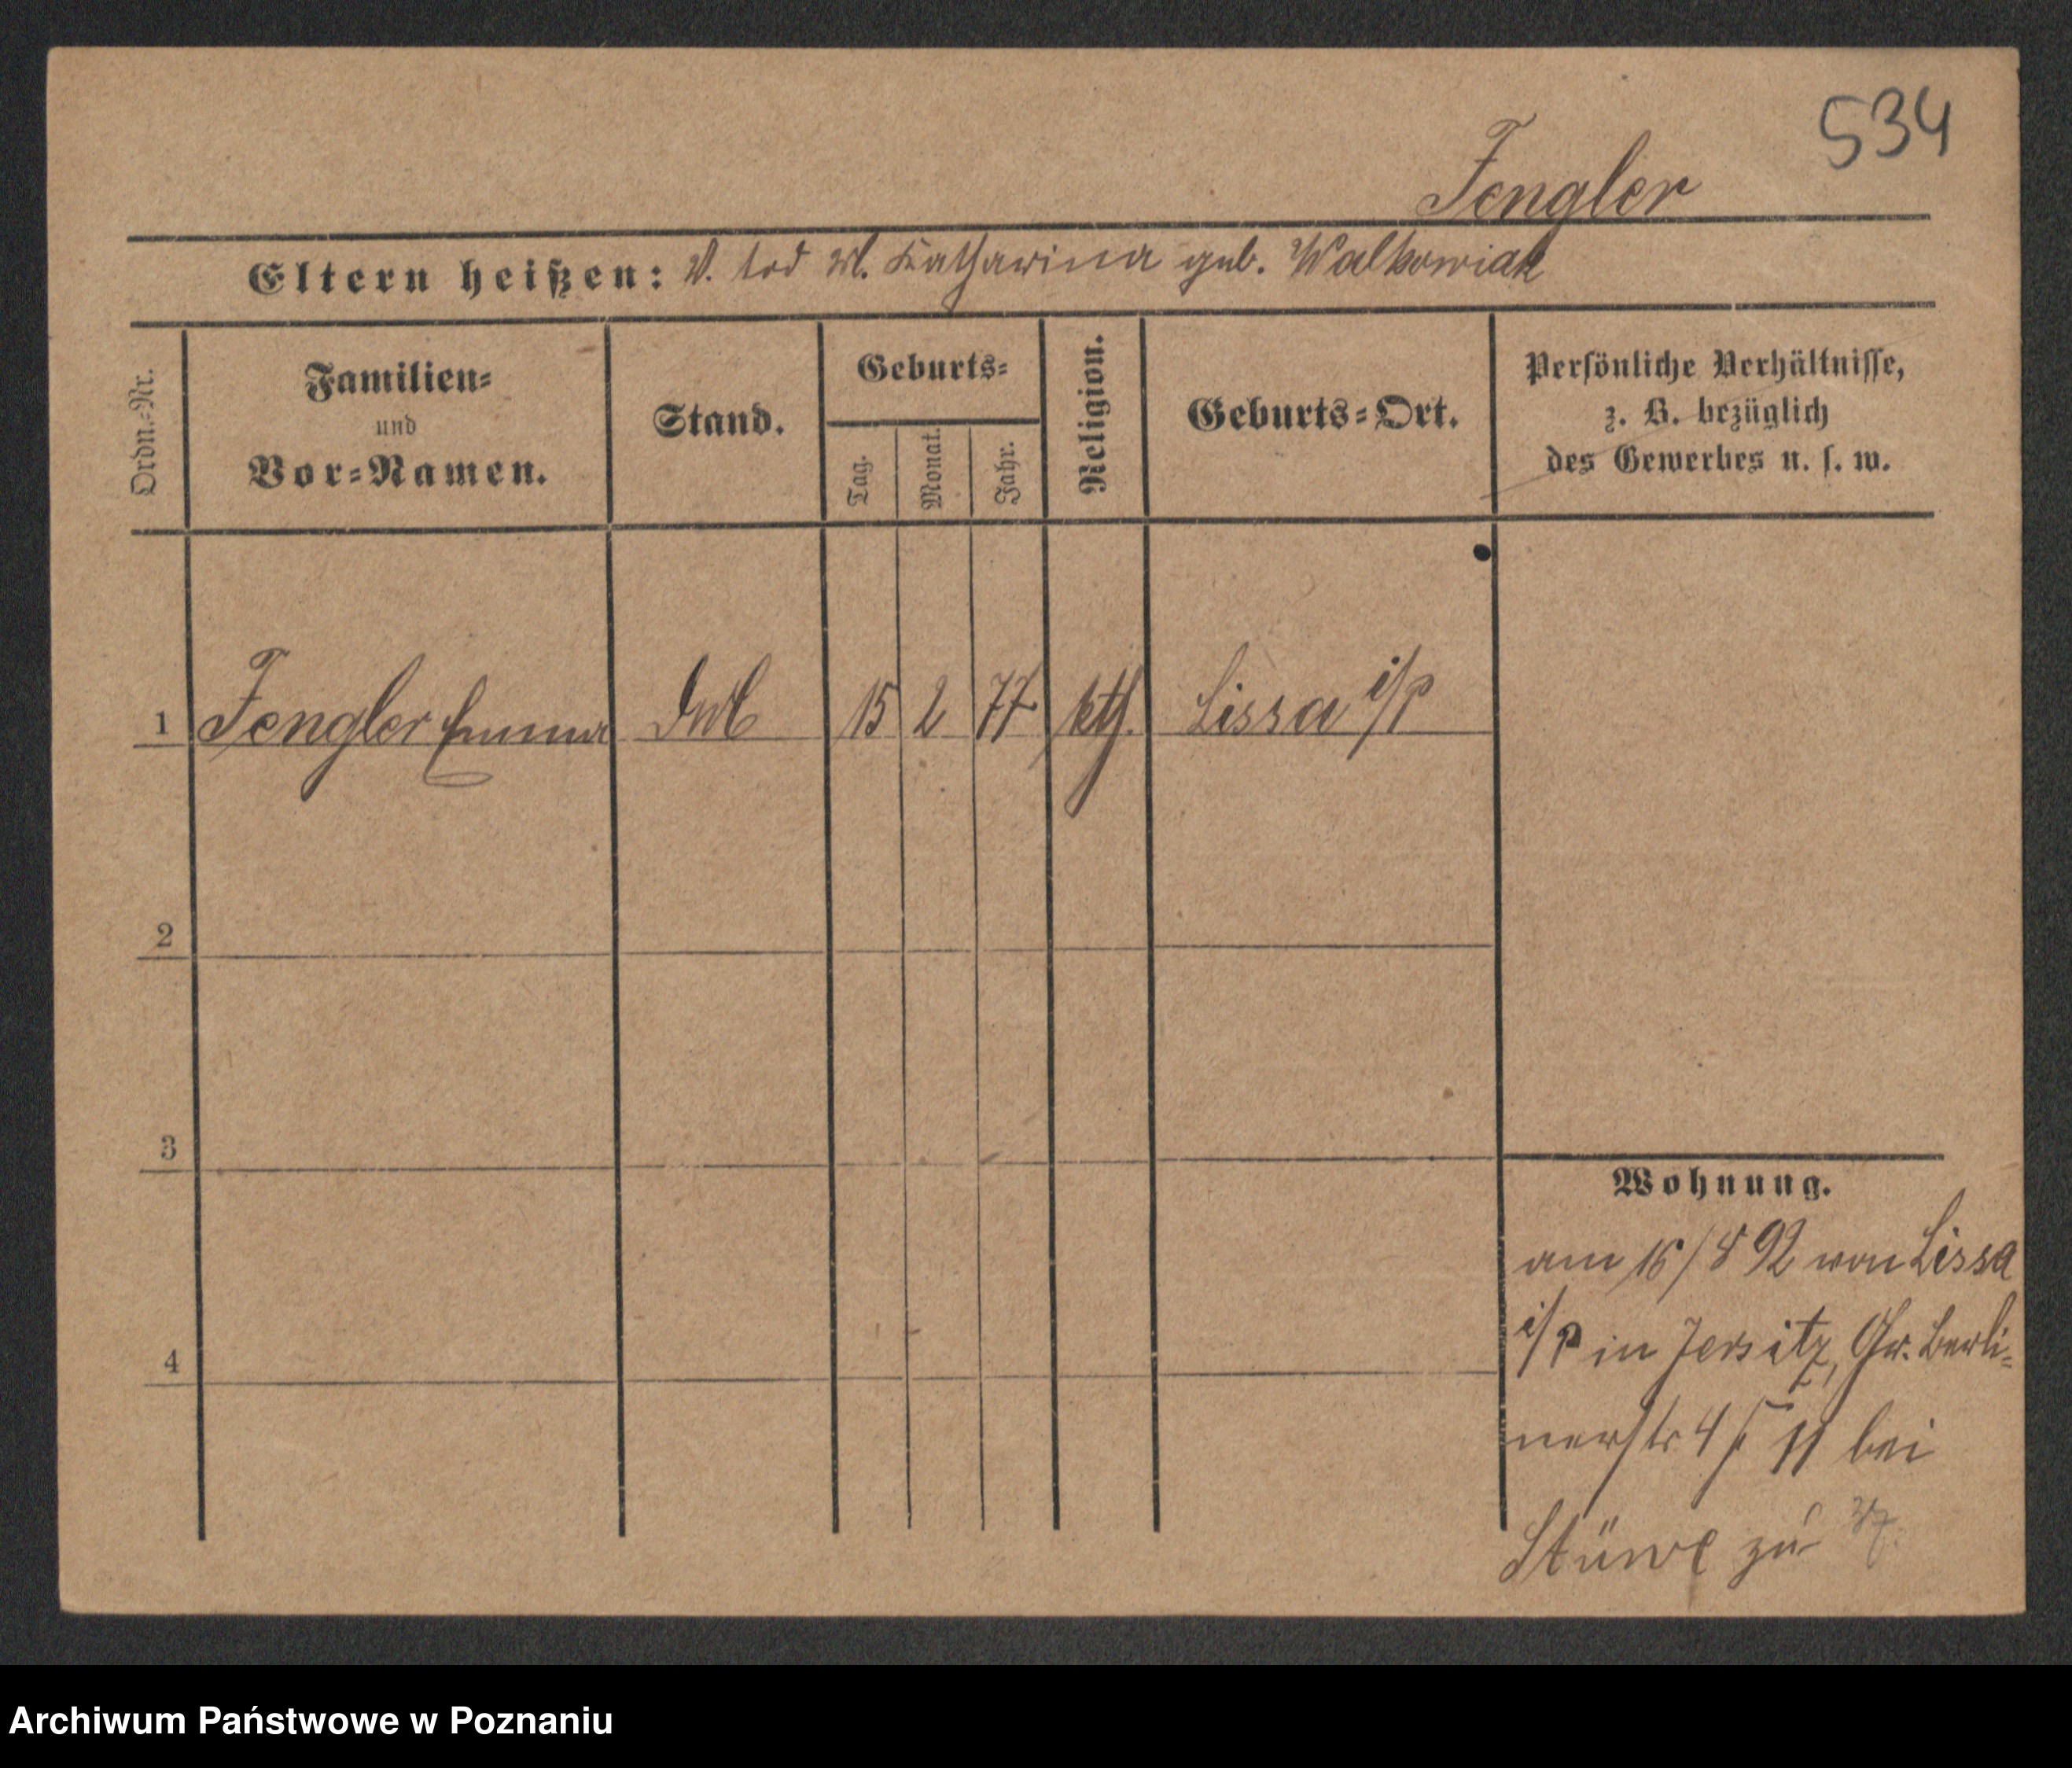 534
Fengler
Eltern heißen: V. tod M. Katharina geb. Walkowiak
Ordn.-Nr.
Familien-
und
Vor-Namen.
Stand.
Geburts-
Tag.
Monat.
Jahr.
Religion.
Geburts-Ort.
Persönliche Verhältnisse,
z. B. bezüglich
des Gewerbes u. s. w.
1 Fengler Emma 15 2 77 kth. Lissa i/P
2
3
4
Wohnung.
am 16/8 92 von Lissa
i/P in Jersitz, Gr. Berli-
nerstr 4 bei
Stüwe zu
Archiwum Państwowe w Poznaniu